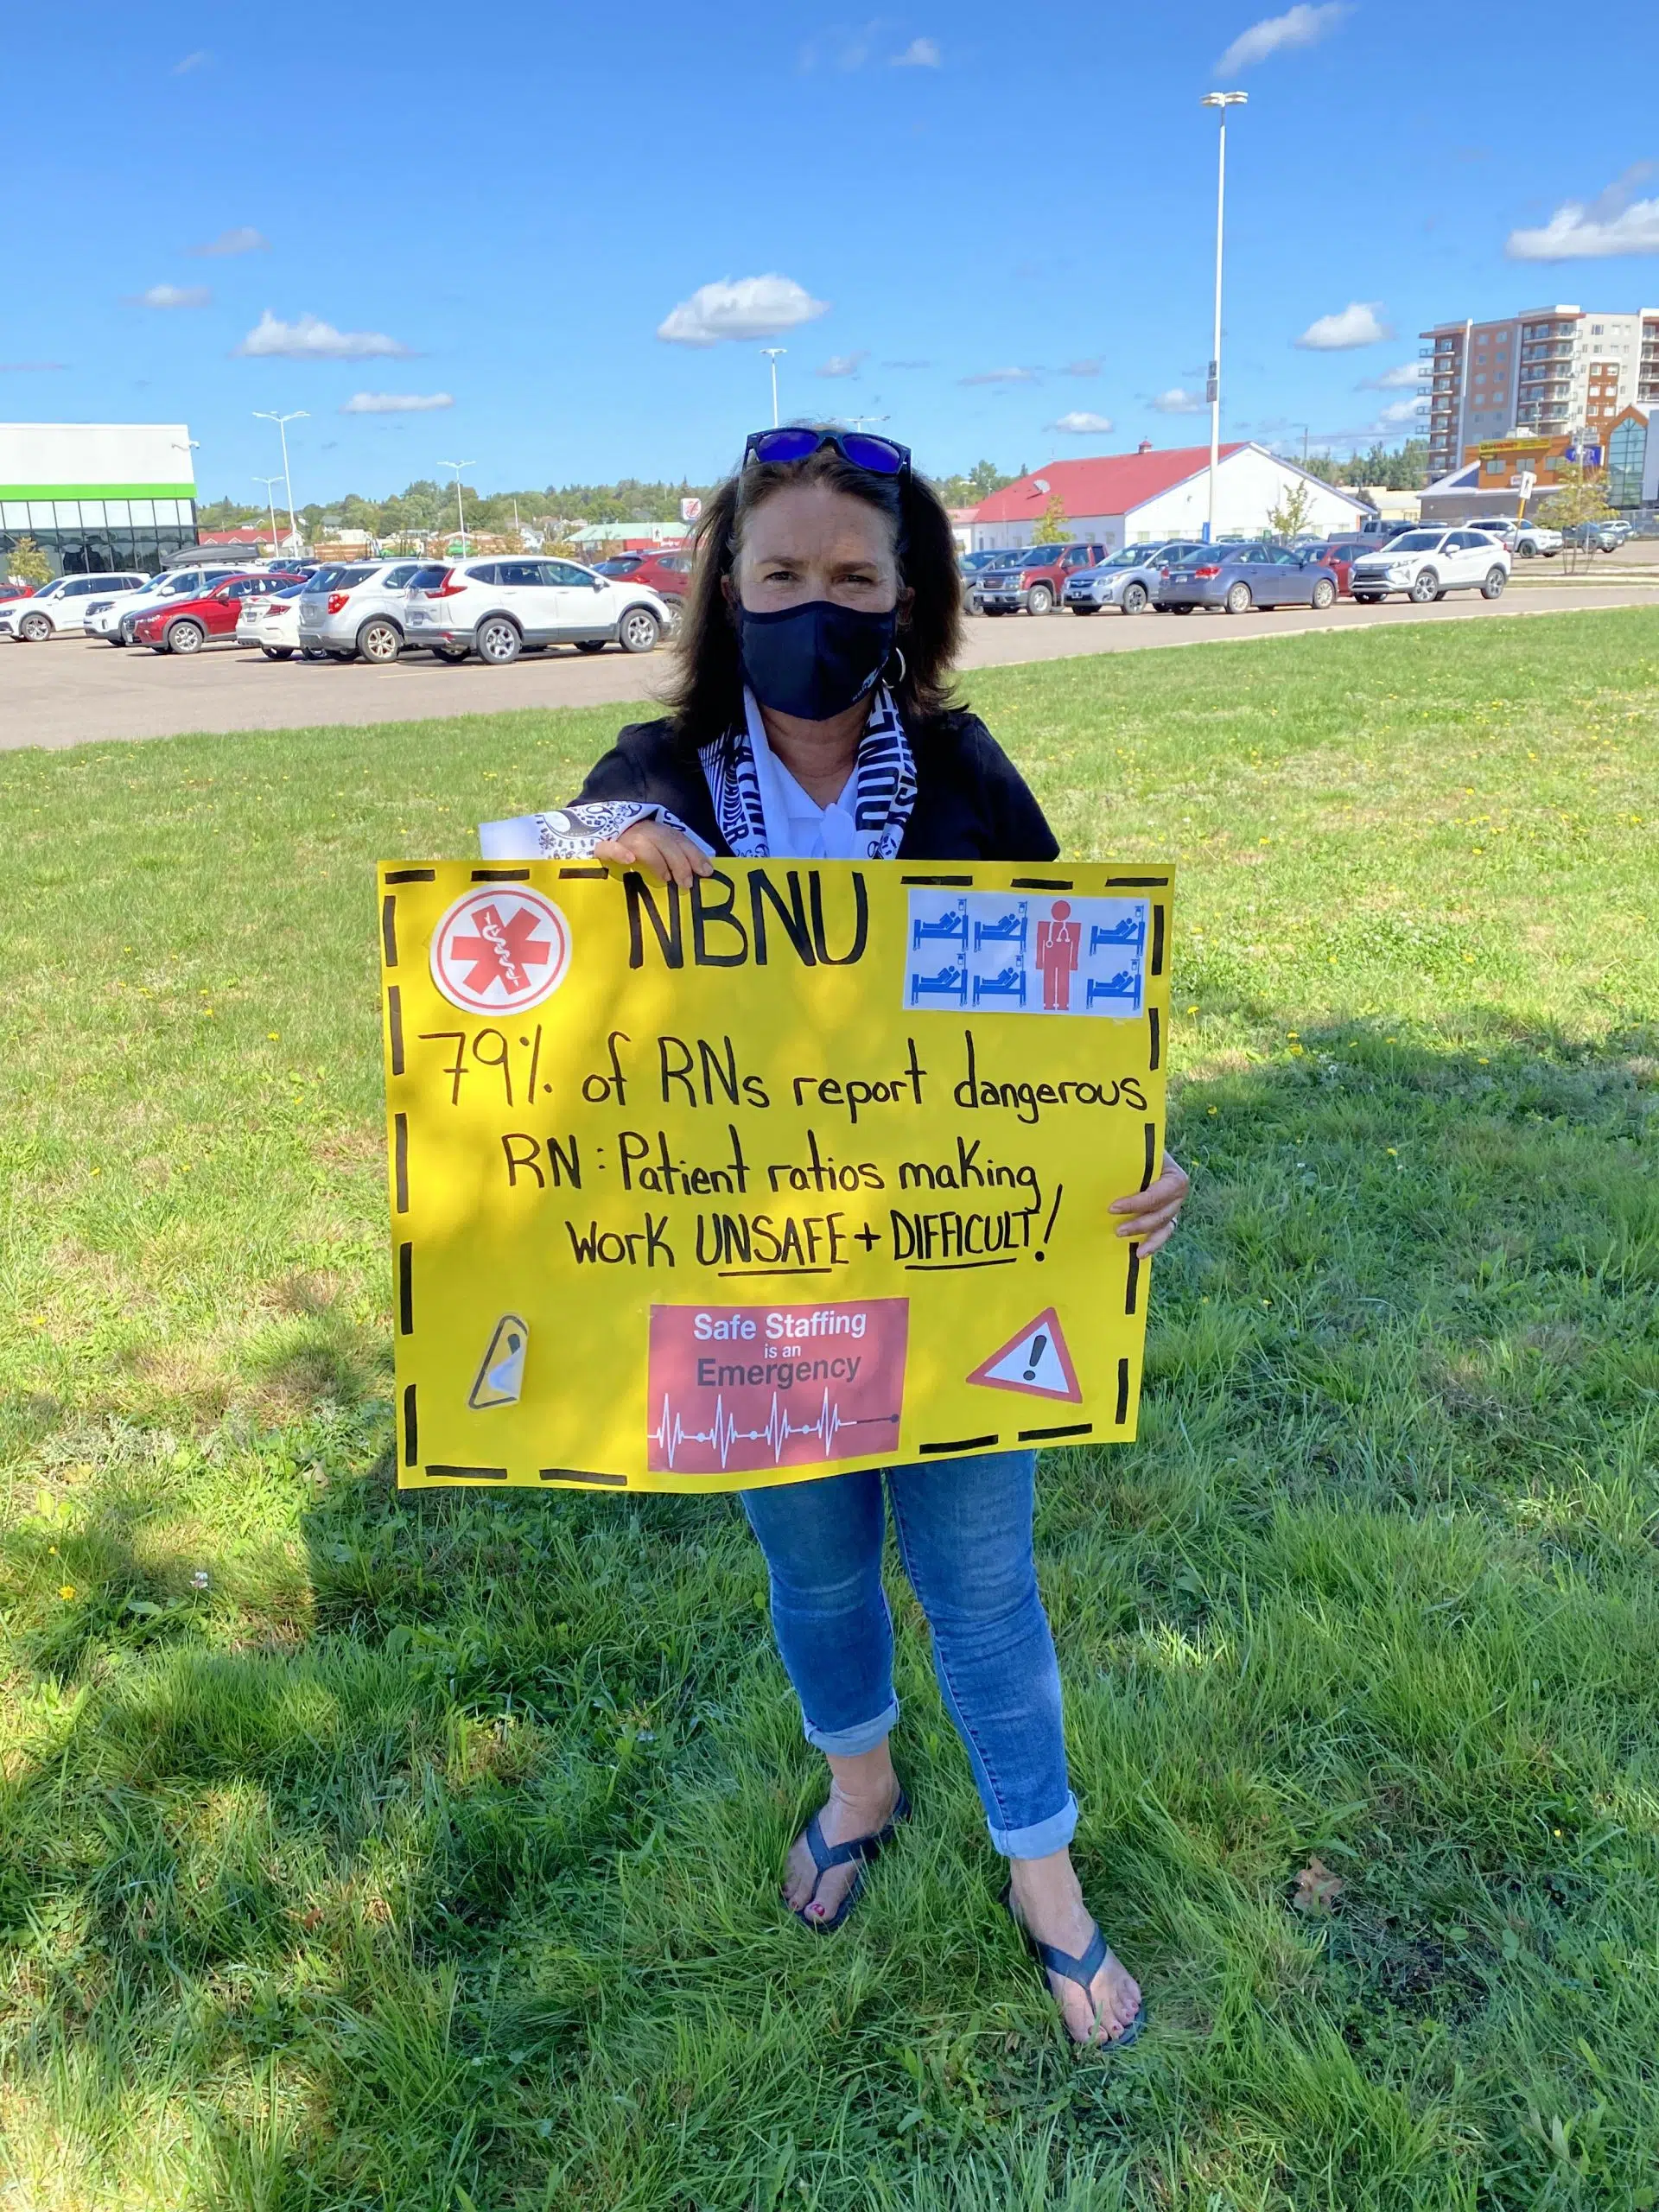 NBNU
79% of RNs report dangerous
RN: Patient ratios making
Work UNSAFE + DIFFICULT!
Safe Staffing
is an
Emergency